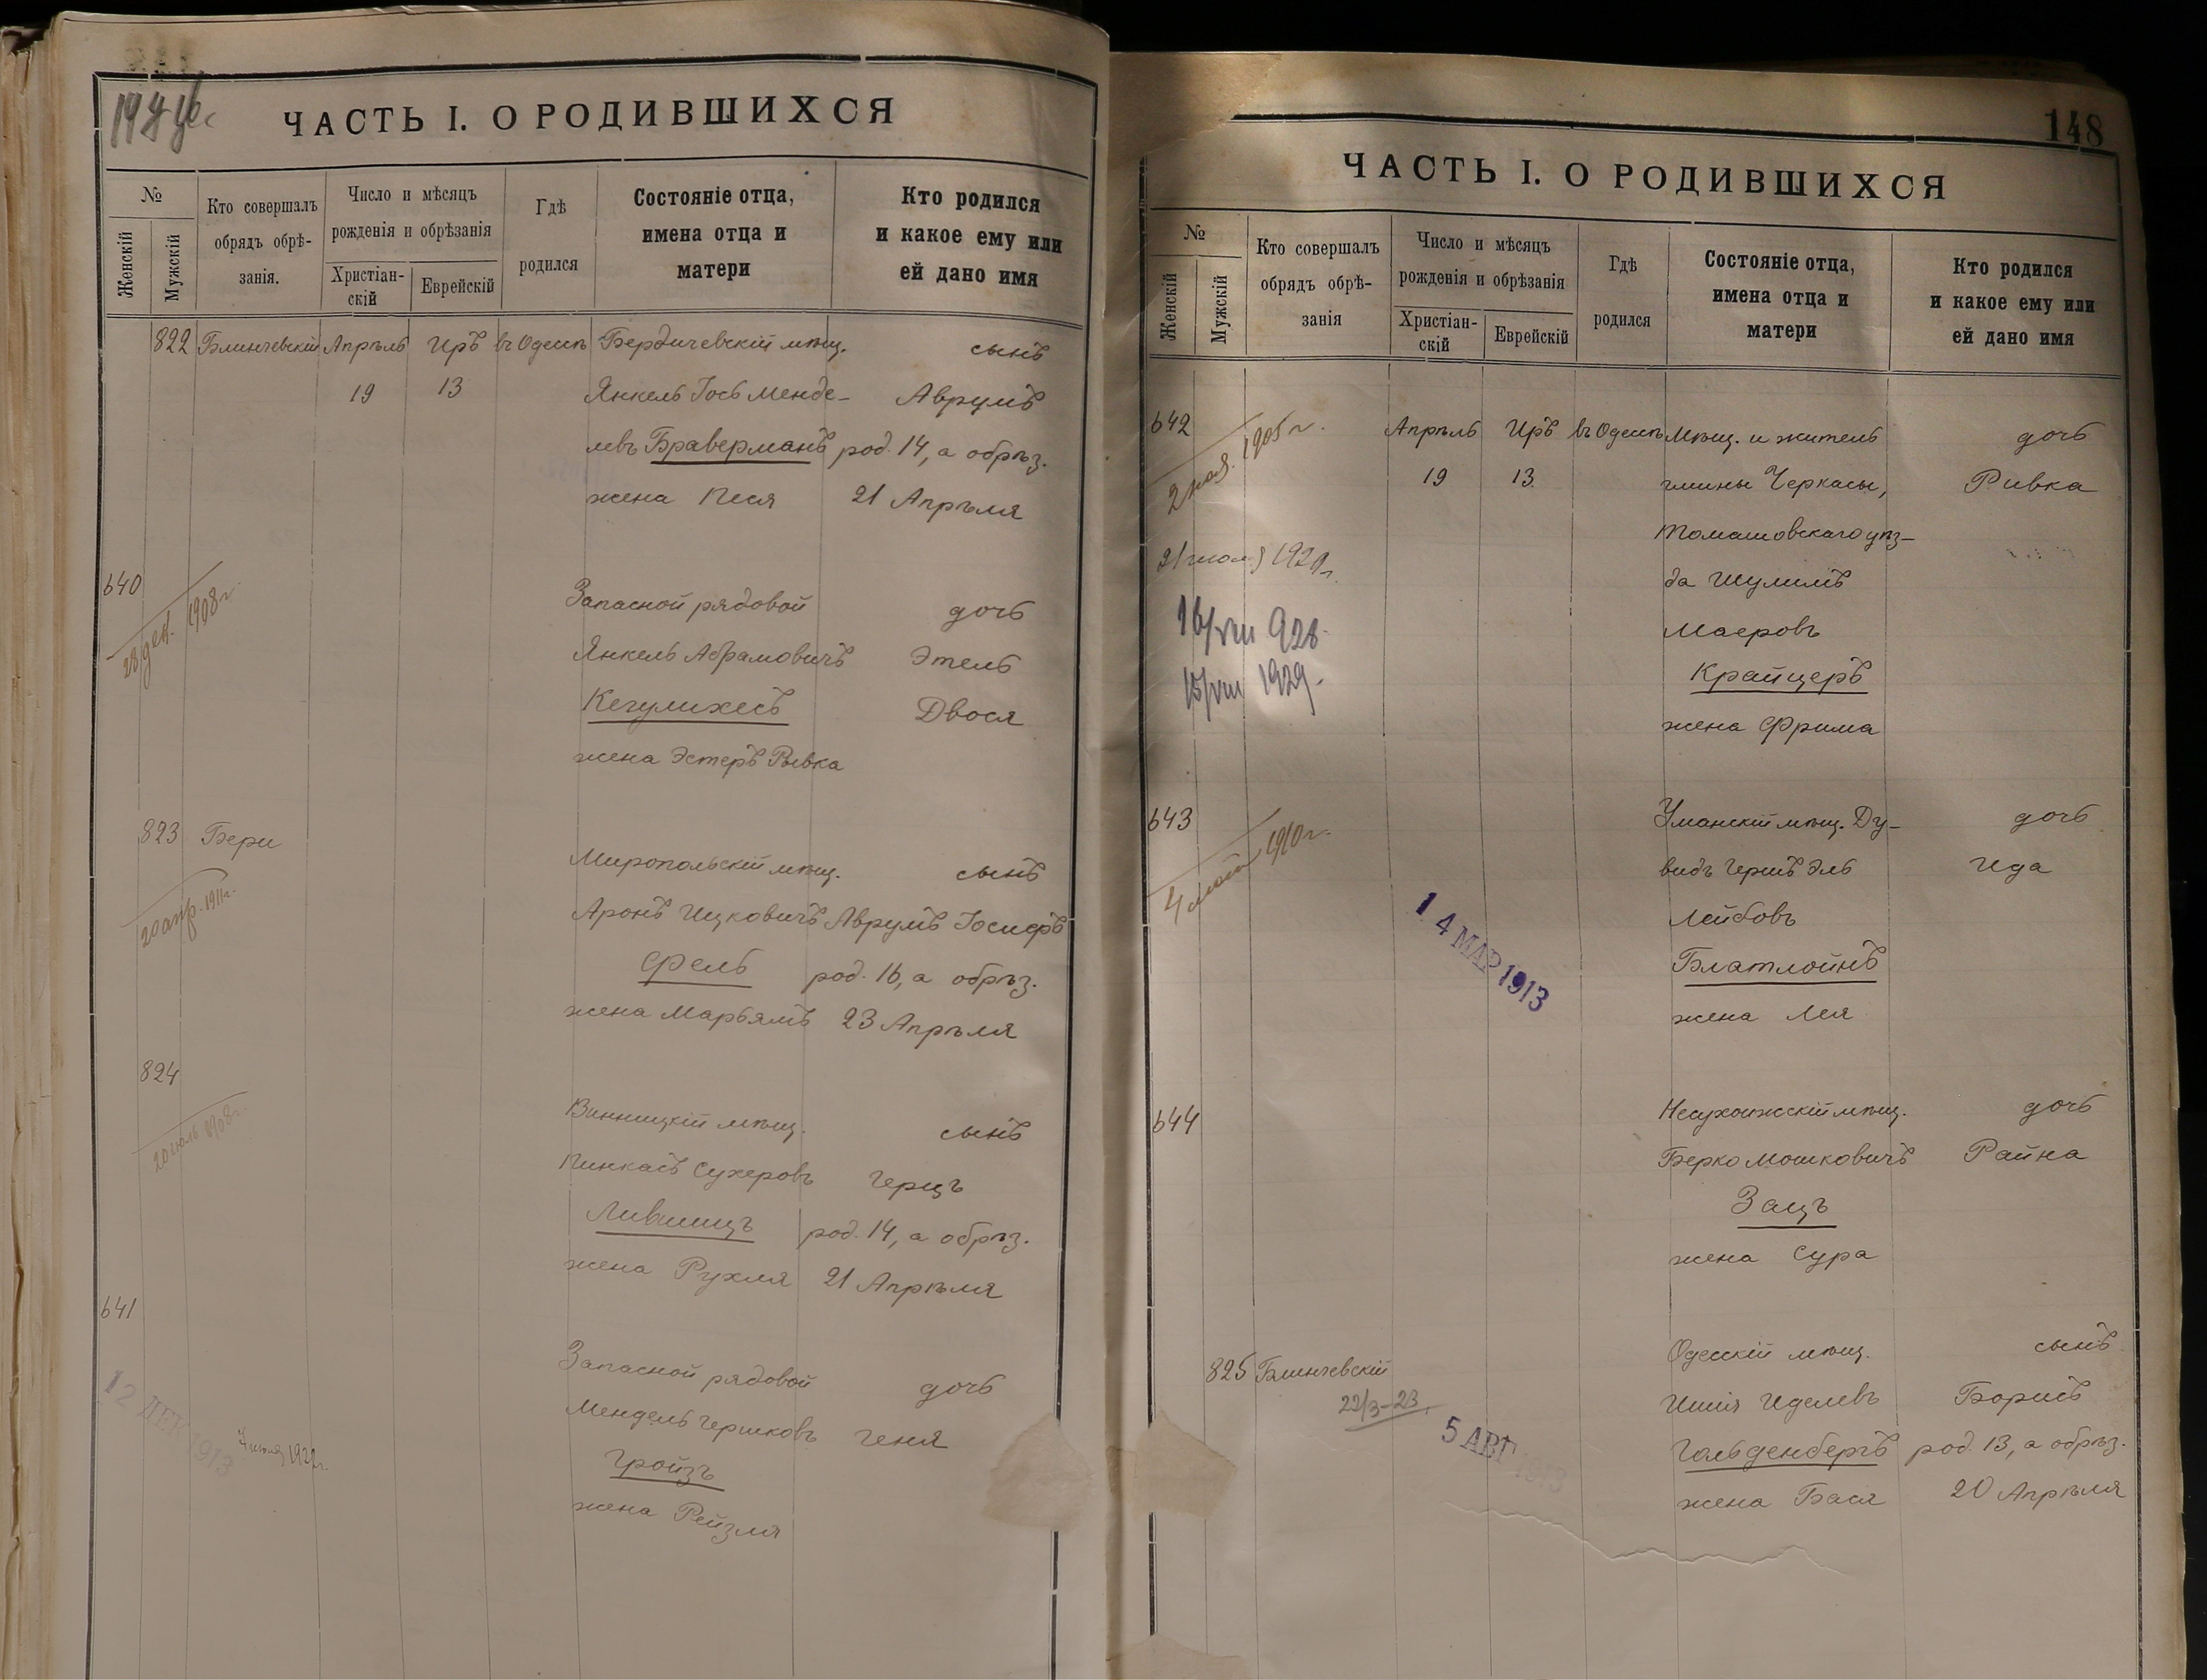 ЧАСТЬ I. О РОДИВШИХСЯ
№
Женскій
Мужскій
Кто совершалъ
обрядъ обрѣ-
занія.
Число и мѣсяцъ
рожденія и обрѣзанія
Христіан-
скій
Еврейскій
Гдѣ
родился
Состояніе отца,
имена отца и
матери
Кто родился
и какое ему или
ей дано имя
822 Блинчевскій Апрѣль Иръ въ Одессѣ Бердичевскій мѣщ. сынъ
19 13 Янкель Іось Менде- Аврумъ
левъ Браверманъ род. 14, а обрѣз.
жена Песя 21 Апрѣля
640
28 дек. 1908 г.
Запасной рядовой дочь
Янкель Абрамовичъ Этель
Кегулихесъ Двося
жена Эстеръ Ривка
823 Бери
20 апр. 1911 г.
Миропольскій мѣщ. сынъ
Аронъ Ицковичъ Аврумъ Іосифъ
Фель род. 16, а обрѣз.
жена Марьямъ 23 Апрѣля
824
20 іюль 1908 г.
Винницкій мѣщ. сынъ
Пинкасъ Сухеровъ Герцъ
Лившицъ род. 14, а обрѣз.
жена Рухля 21 Апрѣля
641
12 ДЕК 1913
1922 г.
Запасной рядовой дочь
Мендель Гершковъ Геня
Гройзъ
жена Рейзля
148
ЧАСТЬ I. О РОДИВШИХСЯ
№
Женскій
Мужскій
Кто совершалъ
обрядъ обрѣ-
занія
Число и мѣсяцъ
рожденія и обрѣзанія
Христіан-
скій
Еврейскій
Гдѣ
родился
Состояніе отца,
имена отца и
матери
Кто родился
и какое ему или
ей дано имя
642 Апрѣль Иръ въ Одессѣ Мѣщ. и житель дочь
2 ноя. 1905 г.
19 13 гмины Черкасы, Ривка
Томашовскаго уѣз-
21 1920 г.
да Шулимъ
16/VIII 928
Маеровъ
15/VIII 1929.
Крайцеръ
жена Фрима
643
4 1910 г.
Уманскій мѣщ. Ду- дочь
видъ Гершъ Эль Ида
14 МАР 1913
Лейбовъ
Блатлойнъ
жена Лея
644
Несухоижскій мѣщ. дочь
Берко Мошковичъ Райна
Зацъ
жена Сура
825 Блинчевскій Одесскій мѣщ. сынъ
22/3-23
5 АВГ 1913
Ицеля Иделевъ Борисъ
Гольденбергъ род. 13, а обрѣз.
жена Бася 20 Апрѣля